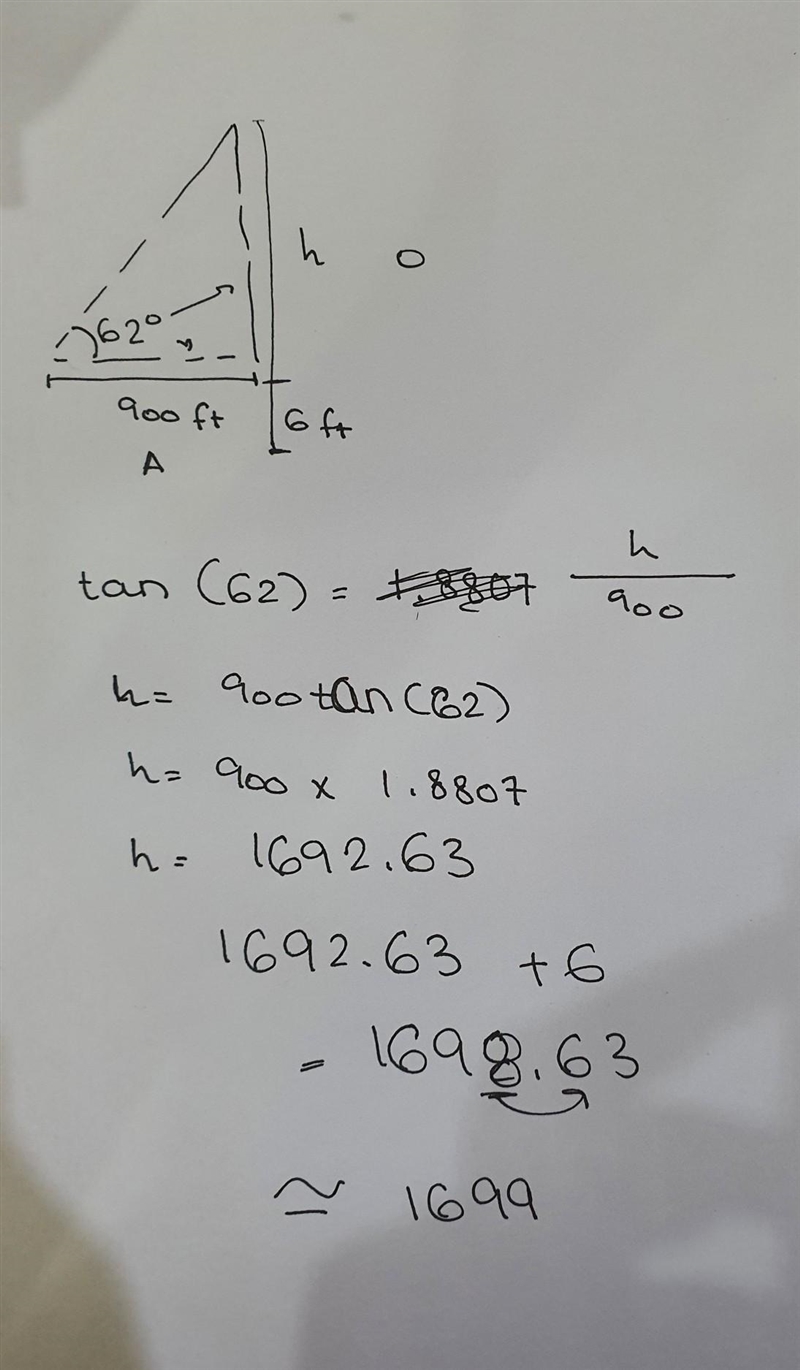 h O
62°
900 ft 6 ft
A
tan (62) = 1.8807 h/900
h = 900 tan (62)
h = 900 x 1.8807
h = 1692.63
1692.63 + 6
= 1698.63
≃ 1699